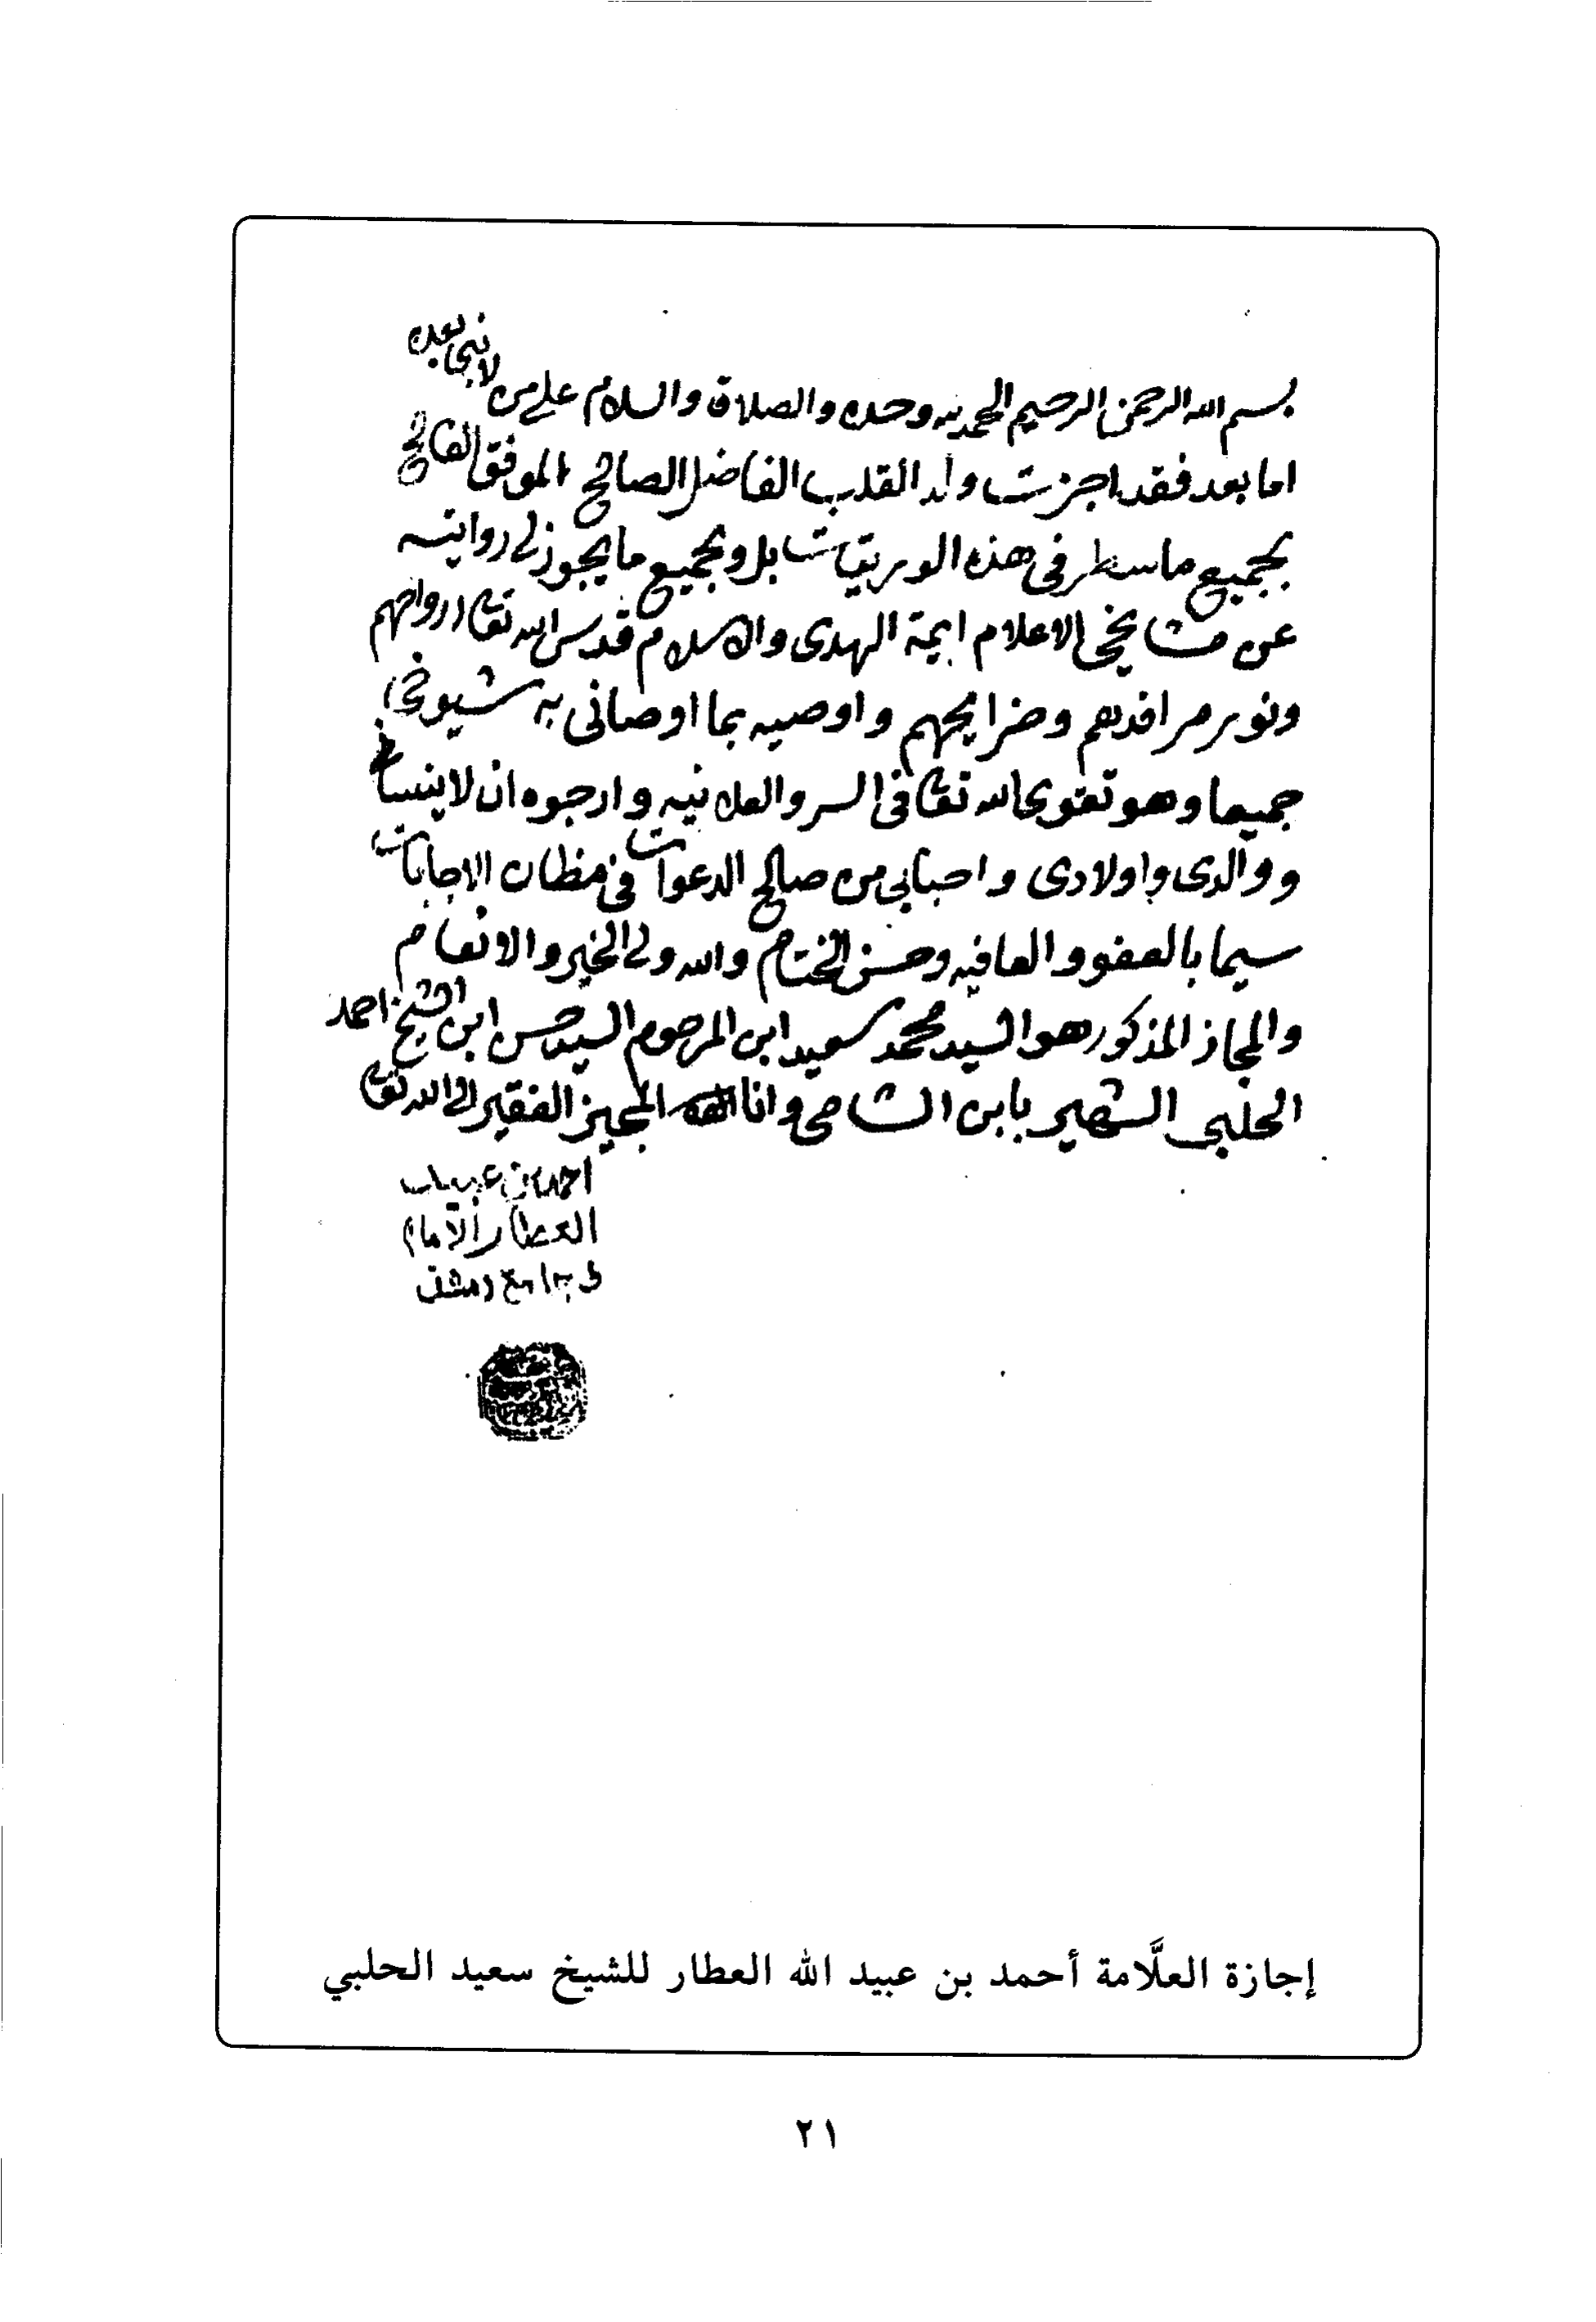 بسم الله الرحمن الرحيم الحمد لله وحده والصلاة والسلام على من لا نبي بعده
اما بعد فقد اجزت ولد القلب الفاضل الصالح الموفق الفالح
بجميع ما سطر في هذه الوريقات بل وبجميع ما يجوز لي روايته
عن مشايخي الاعلام ايمة الهدى والاسلام قدس الله تعالى ارواحهم
ونور مراقدهم وضرايحهم واوصيه بما اوصاني به شيوخي
جميعا وهو تقوى الله تعالى في السر والعلانيه وارجوه ان لا ينساني
ووالدي واولادي واحبابي من صالح الدعوات في مظان الاجابات
سيما بالعفو والعافيه وحسن الختام والله ولي الخير والانعام
والمجاز المذكور هو السيد محمد سعيد ابن المرحوم السيد حسن ابن الشيخ احمد
الحلبي الشهير بابن الشامي وانا المجيز الفقير الى الله تعالى
احمد بن عبيد
العطار الامام
في جامع دمشق
إجازة العلَّامة أحمد بن عبيد الله العطار للشيخ سعيد الحلبي
٢١